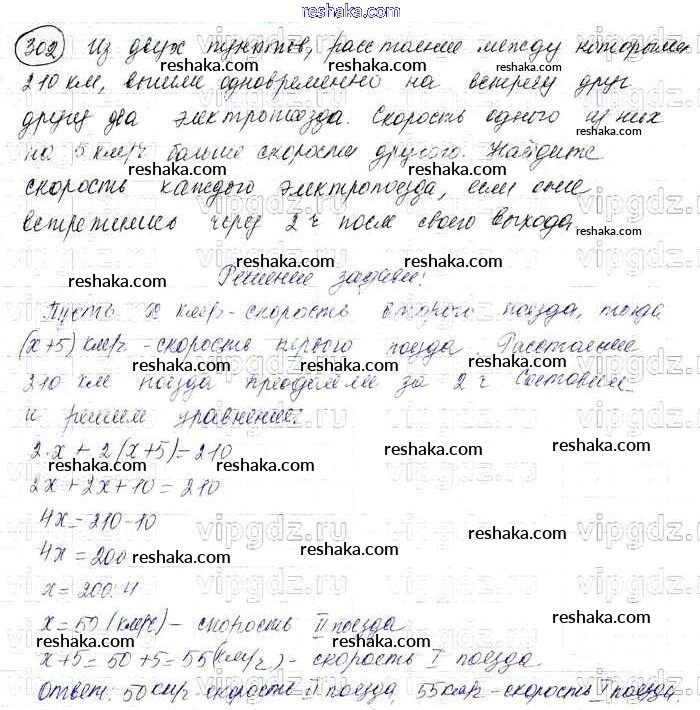 reshaka.com
302 Из двух пунктов, расстояние между которыми
210 км, вышли одновременно на встречу друг
reshaka.com reshaka.com
другу два электропоезда. Скорость одного из них
reshaka.com reshaka.com
на 5 км/ч больше скорости другого. Найдите
скорость каждого электропоезда, если они
reshaka.com reshaka.com
встретились через 2 ч после своего выхода
vipgdz.ru vipgdz.ru
reshaka.com reshaka.com
Решение задачи:
reshaka.com reshaka.com
Пусть x км/ч - скорость второго поезда, тогда
(x+5) км/ч - скорость первого поезда. Расстояние
reshaka.com reshaka.com
210 км поезда преодолели за 2 ч Составим
и решим уравнение:
reshaka.com reshaka.com
2·x + 2(x+5)=210
reshaka.com reshaka.com
2x+2x+10=210
reshaka.com reshaka.com
4x=210-10
reshaka.com reshaka.com
4x=200
reshaka.com reshaka.com
x=200:4
x=50 (км/ч) - скорость II поезда
reshaka.com reshaka.com
x+5=50+5=55(км/ч) - скорость I поезда
reshaka.com reshaka.com
Ответ: 50км/ч-скорость II поезда, 55км/ч-скорость I поезда.
reshaka.com